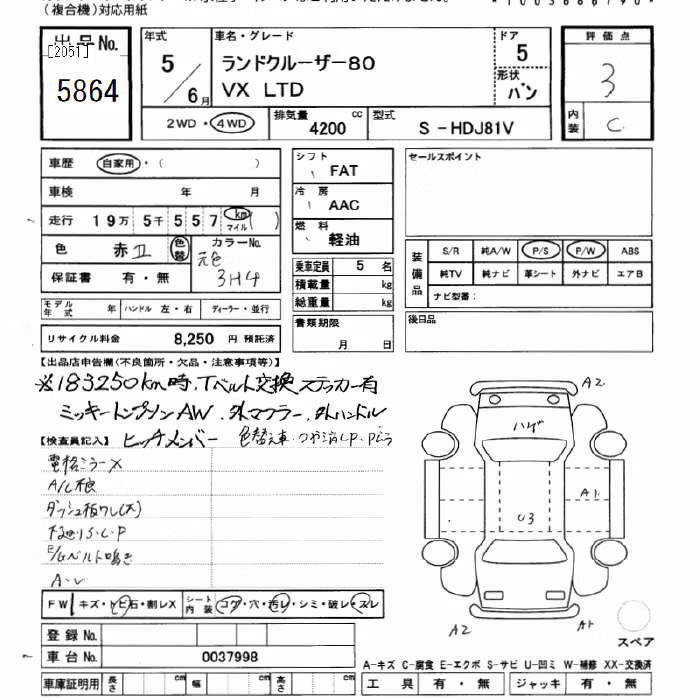 (複合機)対応用紙
出品No.
[2051]
5864
年式 車名・グレード ドア
5/6月 ランドクルーザー80 5
VX LTD 形状 バン
2WD・4WD 排気量 4200 cc 型式 S-HDJ81V
評価点
3
内装 C
車歴 自家用・( )
車検 年 月
走行 19万5千557 km マイル ( )
色 赤II 色替 カラーNo.
元色 3H4
保証書 有・無
モデル年式 年 ハンドル 左・右 ディーラー・並行
リサイクル料金 8,250 円 預託済
シフト FAT
冷房 AAC
燃料 軽油
乗車定員 5 名
積載量 kg
総重量 kg
書類期限
月 日
セールスポイント
装備品
S/R 純A/W P/S P/W ABS
純TV 純ナビ 革シート 外ナビ エアB
ナビ型番:
後日品
【出品店申告欄(不良箇所・欠品・注意事項等)】
※183250km時、Tベルト交換 ステッカー有
ミッキートンプソンAW、外マフラー、外ハンドル
【検査員記入】 ヒッチメンバー 色替え車
電格ミラー×
ダッシュ板ワレ(大)
E/Gベルト鳴き
FW キズ・トビ石・割レX シート内装 コゲ・穴・汚レ・シミ・破レ・スレ
登録No.
車台No. 0037998
車庫証明用 長さ cm 幅 cm 高さ cm
A2
ハゲ
A1
U3
A2
A1
スペア
A-キズ C-腐食 E-エクボ S-サビ U-凹ミ W-補修 XX-交換済
工具 有・無 ジャッキ 有・無